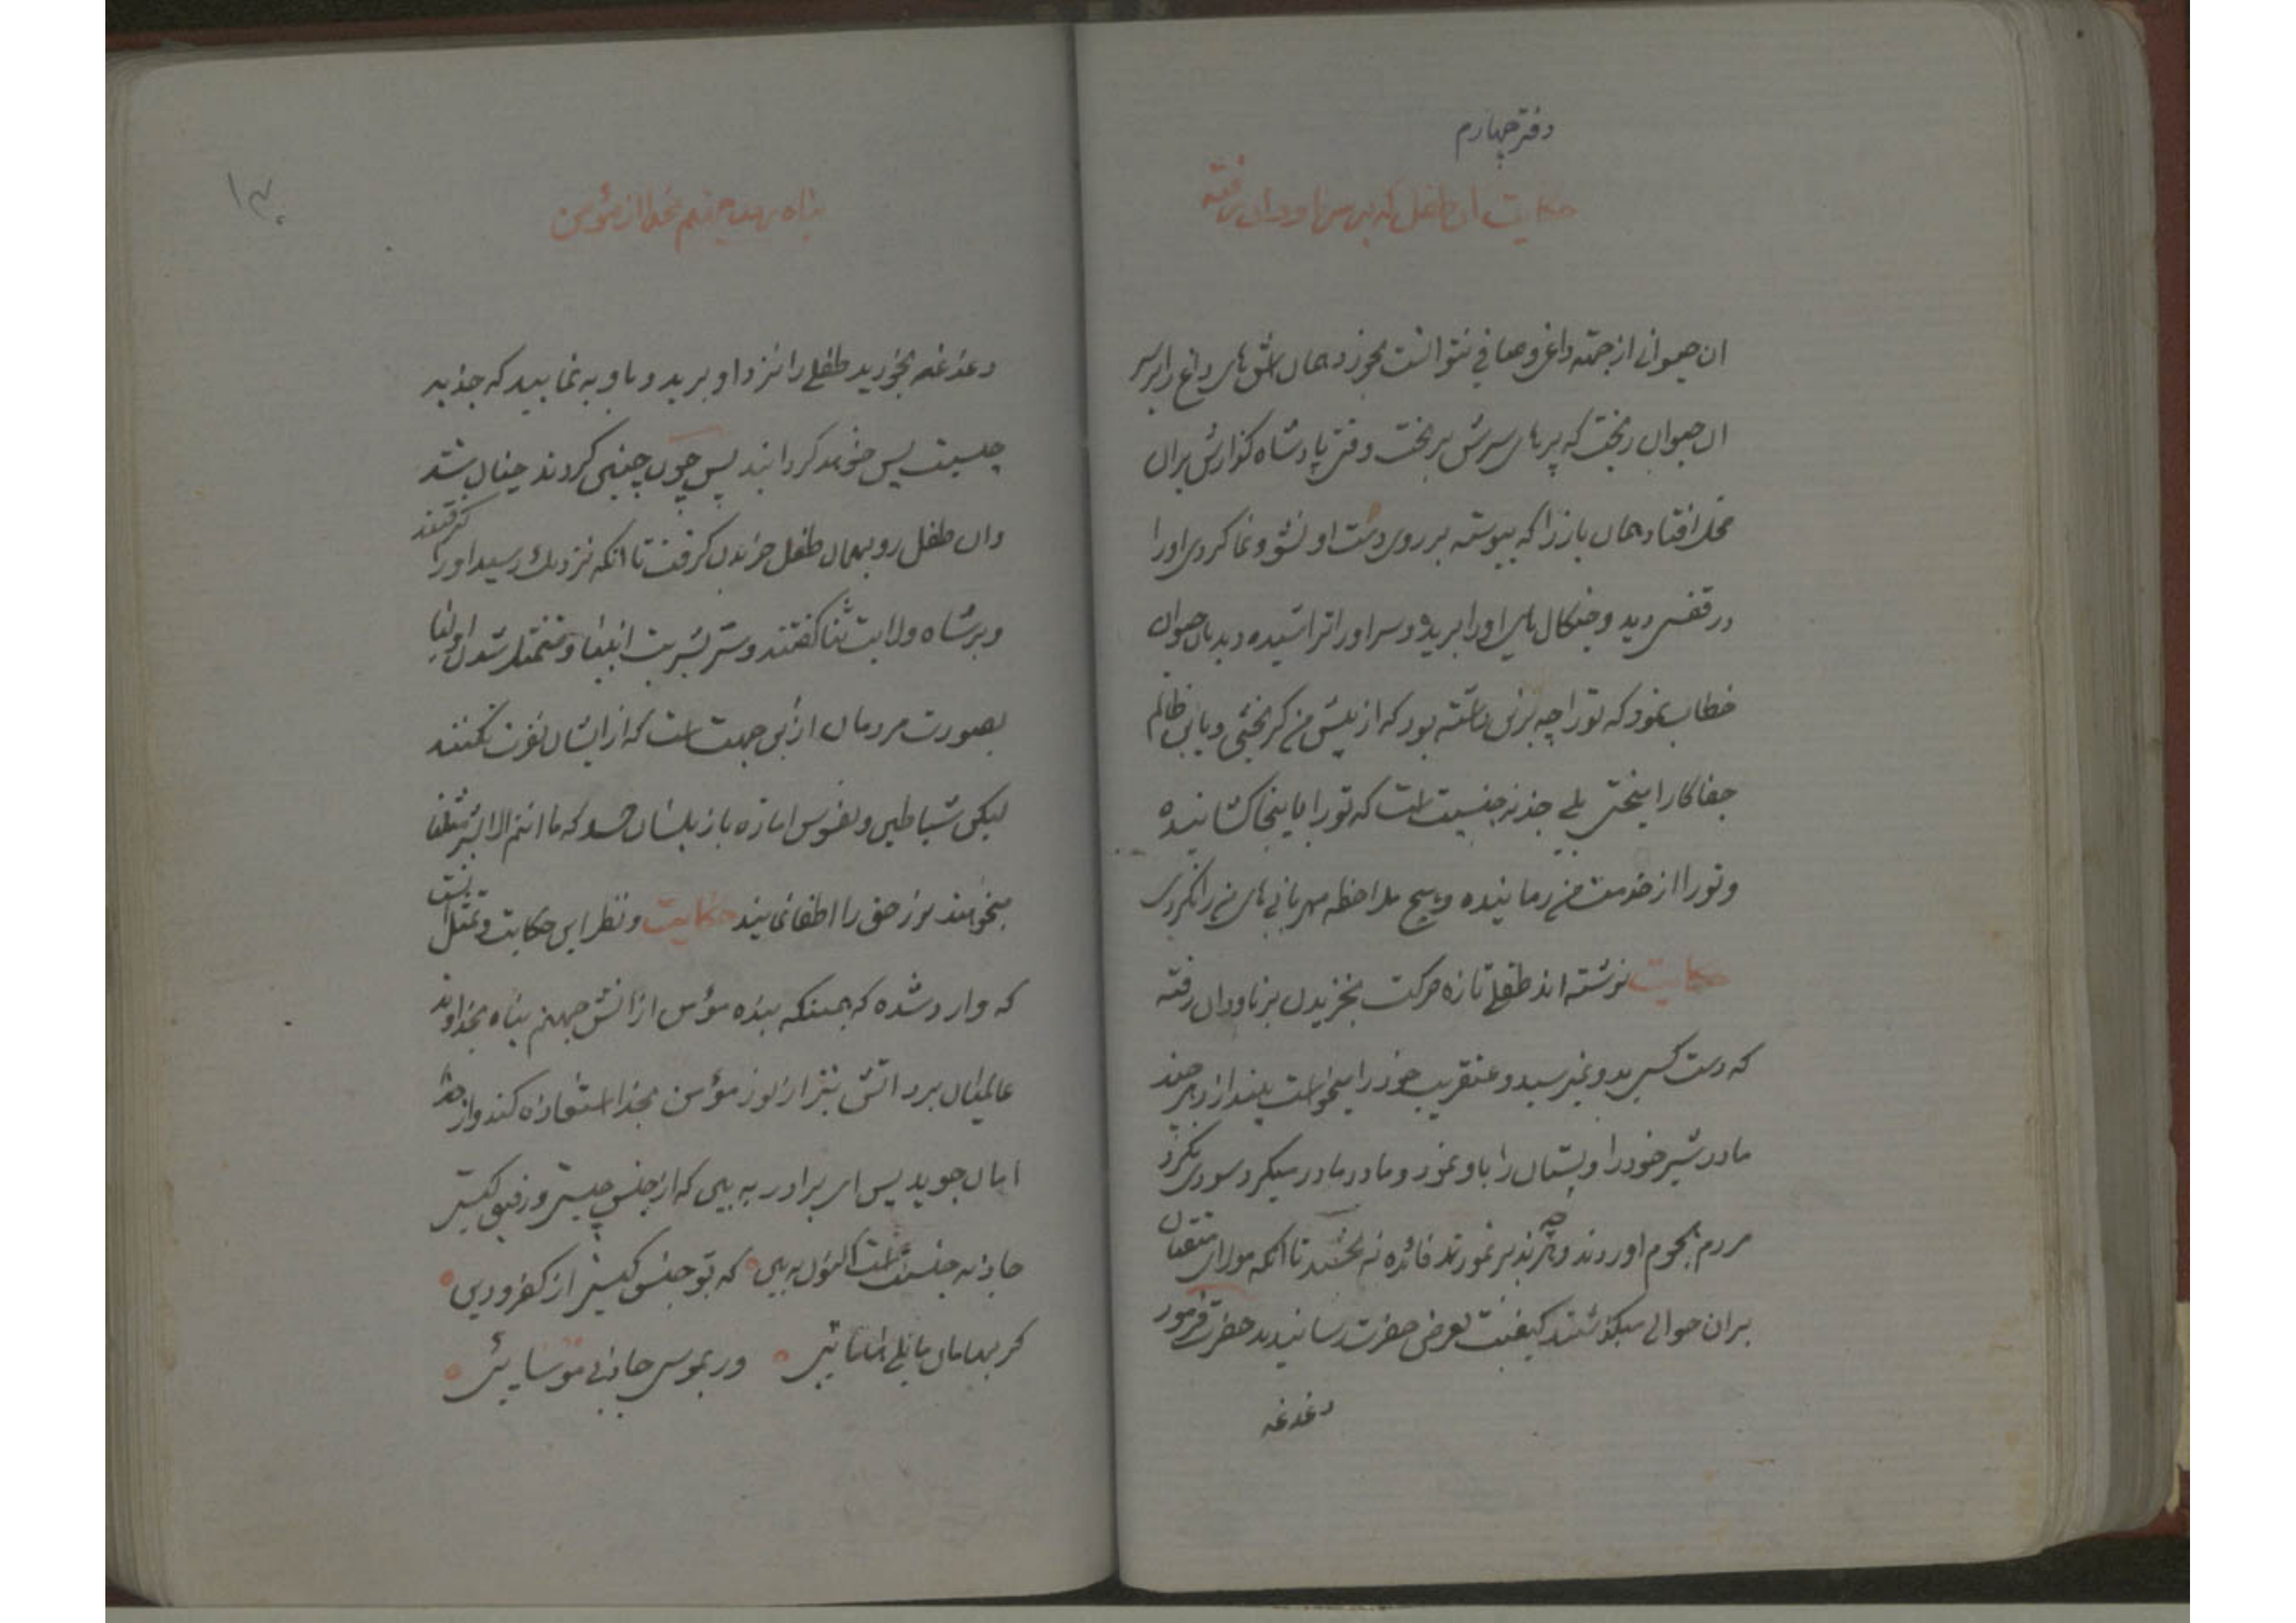 دفتر چهارم
حکایت ان طفل که بر سر ناودان رفته
ان حیوانی از جهته داغی و صافی نتوانست بخورد همان اش های داغ را بر سر
ان حیوان ریخت که پرهای سرش بریخت وقتی پادشاه گذارش بران
محل افتاد همان باز را که پیوسته بر روی دست او نشو و نما کردی او را
در قفس دید و چنگال های او را بریده و سر او را تراشیده دید بان حیوان
خطاب نمود که تو را چه برین داشته بود که از پیش من گریختی و باین ظالم
جفا کار امیختی بلے جذبه جنسیت است که تو را باینجا کشانیده
و تو را از خدمت من رمانیده و هیچ ملاحظه مهربانی های من را نکردی
حکایت نوشته اند طفلے تازه حرکت بخزیدن بر ناودان رفته
که دست کسی بدو نمیرسید و عنقریب خود را میخواست بیندازد هر چند
مادر شیر خود را و پستان را باو نمود و مادر مادر میکرد سودی نکرد
مردم هجوم اوردند و هر چه تدبیر نمودند فائده نه بخشید تا انکه مولای متقیان
بران حوالی میگذشتند کیفیت بعرض حضرت رسانیدند حضرت فرمود
دغدغه
پناه بردن جهنم بخدا از مؤمن
دغدغه نخورید طفلے را نزد او برید و باو به نمایید که جذبه
جنسیت پس خواهد گردانید پس چون چنین کردند چنان شد
وان طفل رو بهمان طفل خزیدن گرفت تا انکه نزدیک رسید او را گرفتند
و بر شاه ولایت ثنا گفتند و سر بشریت انبیا و متمثل شدن اولیا
بصورت مردمان ازین جهت است که از ایشان نفرت نکنند
لیکن شیاطین و نفوس اماره باز بلسان حسد که ما انتم الا بشر مثلنا
میخواهند نور حق را اطفا نمایند حکایت و نظر این حکایت و تمثل است
که وارد شده که همینکه بنده مؤمن از اتش جهنم پناه بخداوند
عالمیان برد اتش نیز از نور مؤمن بخدا استعاذه کند و از خدا
امان جوید پس ای برادر به بین که از جنس کیستی و رفیق کیستی
جاذبه جنسیت است اکنون به بین که تو جنس کیستی از کفر و دین
گر بهامان مایلے هامانئی ور بموسی جاذبی موسائی